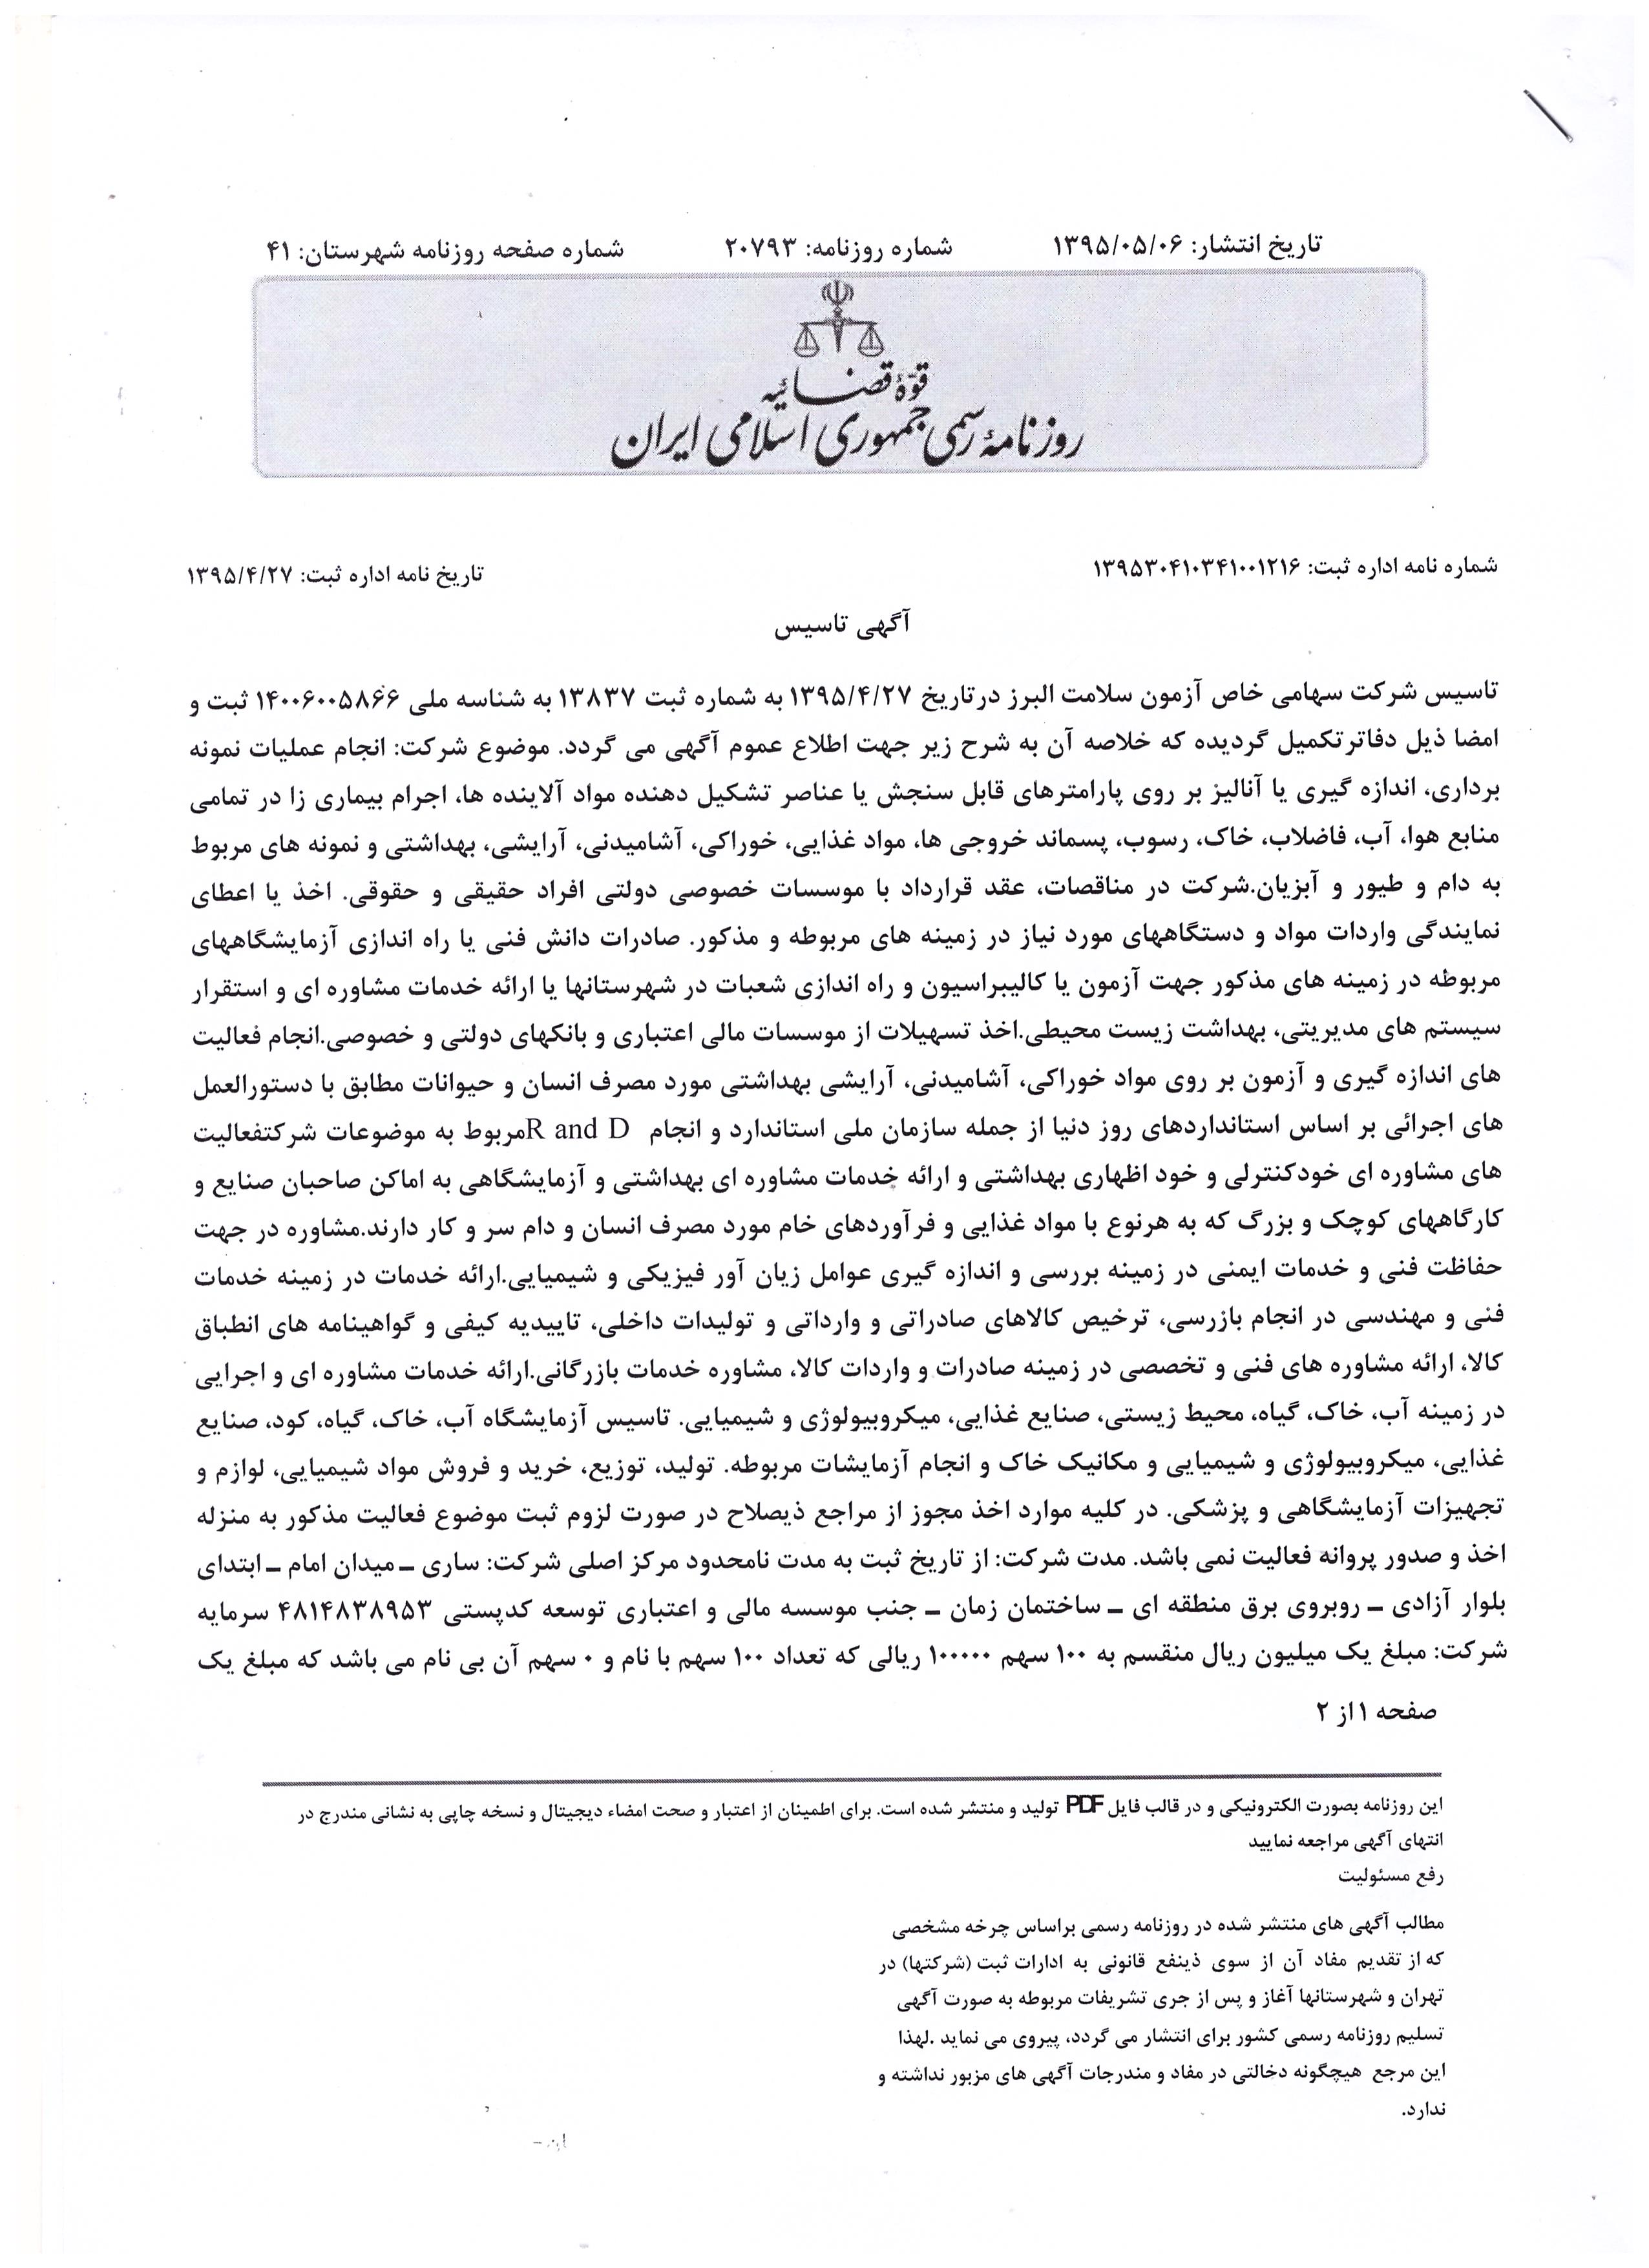 تاریخ انتشار: ۱۳۹۵/۰۵/۰۶ شماره روزنامه: ۲۰۷۹۳ شماره صفحه روزنامه شهرستان: ۴۱
قوّهٔ قضائیه
روزنامهٔ رسمی جمهوری اسلامی ایران
شماره نامه اداره ثبت: ۱۳۹۵۳۰۴۱۰۳۴۱۰۰۱۲۱۶ تاریخ نامه اداره ثبت: ۱۳۹۵/۴/۲۷
آگهی تاسیس
تاسیس شرکت سهامی خاص آزمون سلامت البرز درتاریخ ۱۳۹۵/۴/۲۷ به شماره ثبت ۱۳۸۳۷ به شناسه ملی ۱۴۰۰۶۰۰۵۸۶۶ ثبت و
امضا ذیل دفاترتکمیل گردیده که خلاصه آن به شرح زیر جهت اطلاع عموم آگهی می گردد. موضوع شرکت: انجام عملیات نمونه
برداری، اندازه گیری یا آنالیز بر روی پارامترهای قابل سنجش یا عناصر تشکیل دهنده مواد آلاینده ها، اجرام بیماری زا در تمامی
منابع هوا، آب، فاضلاب، خاک، رسوب، پسماند خروجی ها، مواد غذایی، خوراکی، آشامیدنی، آرایشی، بهداشتی و نمونه های مربوط
به دام و طیور و آبزیان.شرکت در مناقصات، عقد قرارداد با موسسات خصوصی دولتی افراد حقیقی و حقوقی. اخذ یا اعطای
نمایندگی واردات مواد و دستگاههای مورد نیاز در زمینه های مربوطه و مذکور. صادرات دانش فنی یا راه اندازی آزمایشگاههای
مربوطه در زمینه های مذکور جهت آزمون یا کالیبراسیون و راه اندازی شعبات در شهرستانها یا ارائه خدمات مشاوره ای و استقرار
سیستم های مدیریتی، بهداشت زیست محیطی.اخذ تسهیلات از موسسات مالی اعتباری و بانکهای دولتی و خصوصی.انجام فعالیت
های اندازه گیری و آزمون بر روی مواد خوراکی، آشامیدنی، آرایشی بهداشتی مورد مصرف انسان و حیوانات مطابق با دستورالعمل
های اجرائی بر اساس استانداردهای روز دنیا از جمله سازمان ملی استاندارد و انجام R and Dمربوط به موضوعات شرکتفعالیت
های مشاوره ای خودکنترلی و خود اظهاری بهداشتی و ارائه خدمات مشاوره ای بهداشتی و آزمایشگاهی به اماکن صاحبان صنایع و
کارگاههای کوچک و بزرگ که به هرنوع با مواد غذایی و فرآوردهای خام مورد مصرف انسان و دام سر و کار دارند.مشاوره در جهت
حفاظت فنی و خدمات ایمنی در زمینه بررسی و اندازه گیری عوامل زیان آور فیزیکی و شیمیایی.ارائه خدمات در زمینه خدمات
فنی و مهندسی در انجام بازرسی، ترخیص کالاهای صادراتی و وارداتی و تولیدات داخلی، تاییدیه کیفی و گواهینامه های انطباق
کالا، ارائه مشاوره های فنی و تخصصی در زمینه صادرات و واردات کالا، مشاوره خدمات بازرگانی.ارائه خدمات مشاوره ای و اجرایی
در زمینه آب، خاک، گیاه، محیط زیستی، صنایع غذایی، میکروبیولوژی و شیمیایی. تاسیس آزمایشگاه آب، خاک، گیاه، کود، صنایع
غذایی، میکروبیولوژی و شیمیایی و مکانیک خاک و انجام آزمایشات مربوطه. تولید، توزیع، خرید و فروش مواد شیمیایی، لوازم و
تجهیزات آزمایشگاهی و پزشکی. در کلیه موارد اخذ مجوز از مراجع ذیصلاح در صورت لزوم ثبت موضوع فعالیت مذکور به منزله
اخذ و صدور پروانه فعالیت نمی باشد. مدت شرکت: از تاریخ ثبت به مدت نامحدود مرکز اصلی شرکت: ساری ـ میدان امام ـ ابتدای
بلوار آزادی ـ روبروی برق منطقه ای ـ ساختمان زمان ـ جنب موسسه مالی و اعتباری توسعه کدپستی ۴۸۱۴۸۳۸۹۵۳ سرمایه
شرکت: مبلغ یک میلیون ریال منقسم به ۱۰۰ سهم ۱۰۰۰۰۰ ریالی که تعداد ۱۰۰ سهم با نام و ۰ سهم آن بی نام می باشد که مبلغ یک
صفحه ۱ از ۲
این روزنامه بصورت الکترونیکی و در قالب فایل PDF تولید و منتشر شده است. برای اطمینان از اعتبار و صحت امضاء دیجیتال و نسخه چاپی به نشانی مندرج در
انتهای آگهی مراجعه نمایید
رفع مسئولیت
مطالب آگهی های منتشر شده در روزنامه رسمی براساس چرخه مشخصی
که از تقدیم مفاد آن از سوی ذینفع قانونی به ادارات ثبت (شرکتها) در
تهران و شهرستانها آغاز و پس از جری تشریفات مربوطه به صورت آگهی
تسلیم روزنامه رسمی کشور برای انتشار می گردد، پیروی می نماید .لهذا
این مرجع هیچگونه دخالتی در مفاد و مندرجات آگهی های مزبور نداشته و
ندارد.